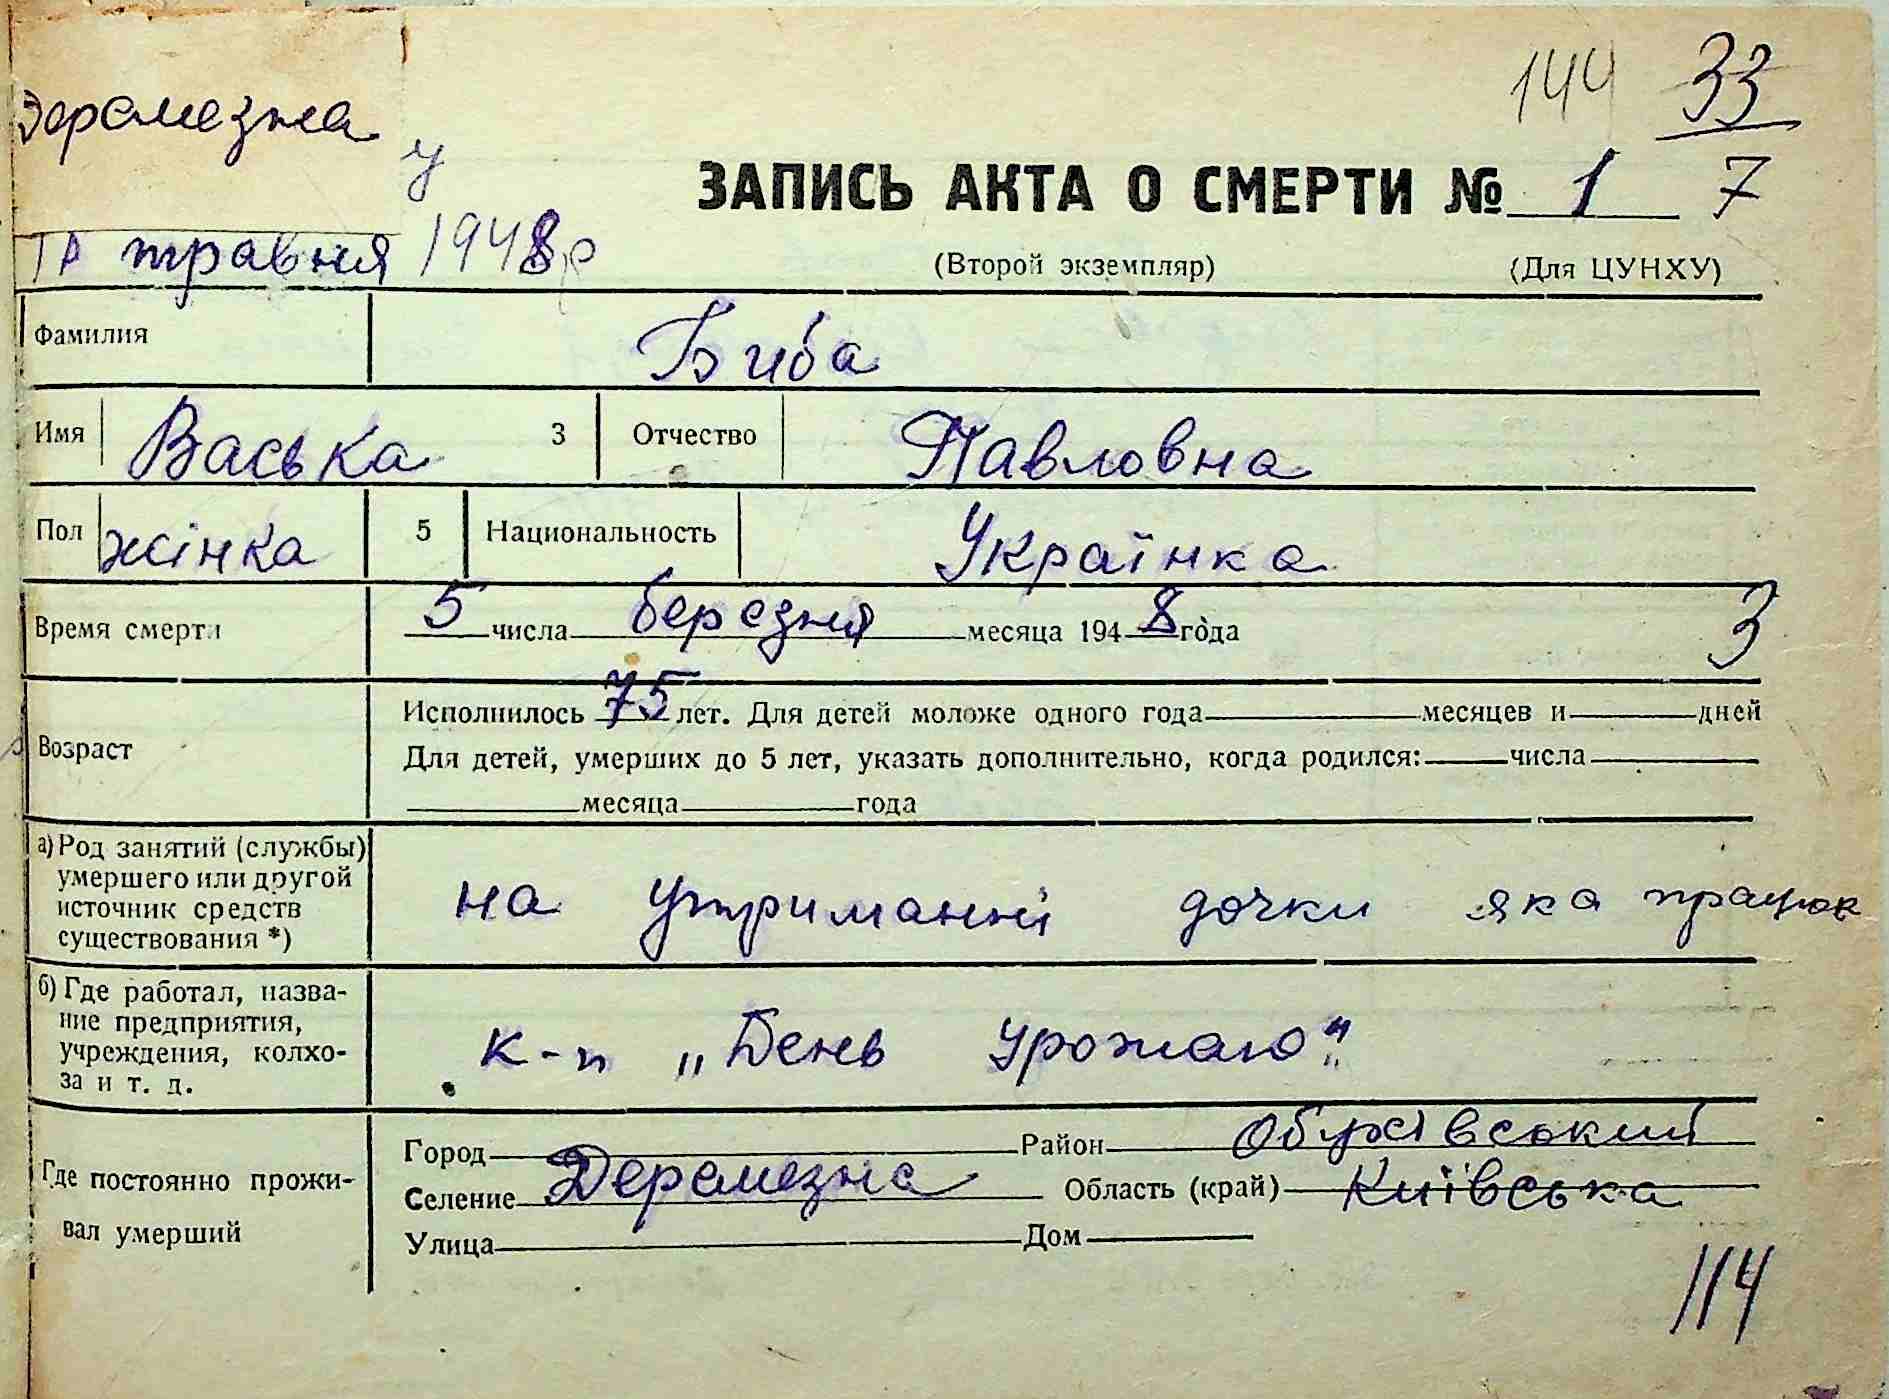 144 33
Деремезна
у
7
ЗАПИСЬ АКТА О СМЕРТИ № 1
травня 1948 р
(Второй экземпляр) (Для ЦУНХУ)
Фамилия Биба
Имя Васька 3 Отчество Павловна
Пол жінка 5 Национальность Українка
Время смерти 5 числа березня месяца 1948 года 3
Исполнилось 75 лет. Для детей моложе одного года месяцев и дней
Возраст
Для детей, умерших до 5 лет, указать дополнительно, когда родился: числа
месяца года
а) Род занятий (службы)
умершего или другой
источник средств
существования *)
на утриманні дочки яка працює
б) Где работал, назва-
ние предприятия,
учреждения, колхо-
за и т. д.
к-п „День урожаю"
Где постоянно прожи-
вал умерший
Город Район Обухівський
Селение Деремезна Область (край) Київська
Улица Дом
114